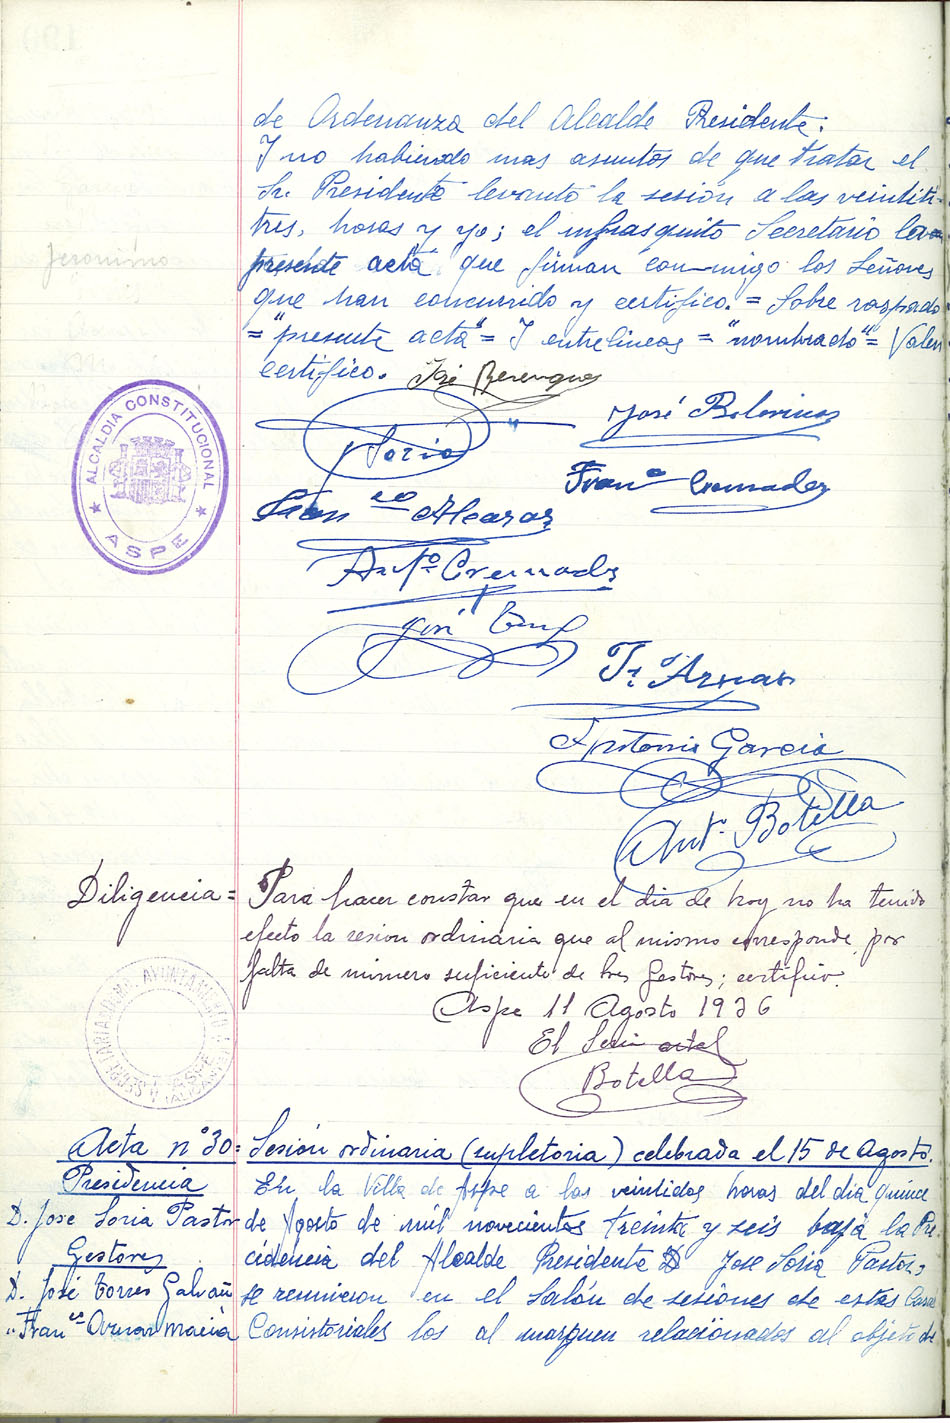 de Ordenanza del Alcalde Presidente.
I no habiendo mas asuntos de que tratar el
Sr. Presidente levantó la sesión a las veintiti-
tres, horas y yo; el infrasquito Secretario la
presente acta que firman con-migo los Señores
que han concurrido y certifico. = Sobre raspado
= "presente acta" = I entrelineas = "nombrado" = Valen
certifico. José Berenguer
Soria
José Bolovinos
Franº Cremades
Franco Alcaraz
Antº Cremades
José
Fº Aznar
Antonio García
Antº Botella
ALCALDIA CONSTITUCIONAL
ASPE
Diligencia = Para hacer constar que en el dia de hoy no ha tenido
efecto la sesion ordinaria que al mismo corresponde, por
falta de número suficiente de Sres Gestores; certifico.
Aspe 11 Agosto 1936
El
Botella
AYUNTAMIENTO
ASPE
(ALICANTE)
Acta nº 30 = Sesión ordinaria (supletoria) celebrada el 15 de Agosto.
Presidencia
D. Jose Soria Pastor
Gestores
D. José Torres Galvañ
" Franco Aznar Maciá
En la Villa de Aspe a las veintidos horas del dia quince
de Agosto de mil novecientos treinta y seis bajo la Pre-
cidencia del Alcalde Presidente D Jose Soria Pastor,
se reunieron en el Salón de sesiones de estas Casas
Consistoriales los al marguen relacionados al objeto de